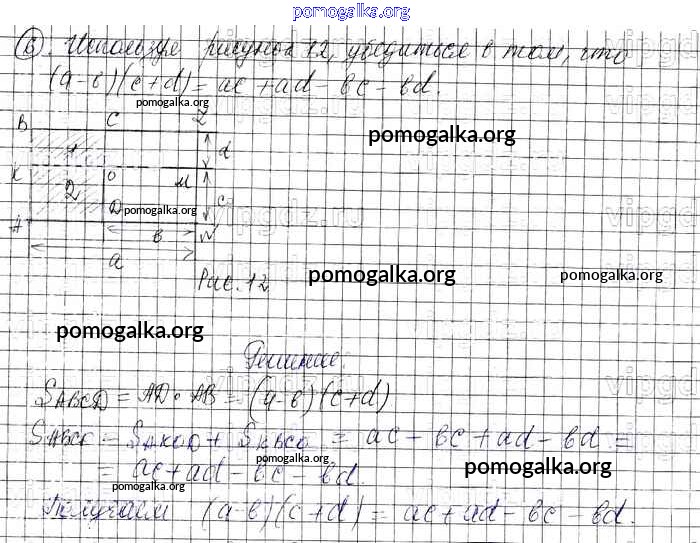 pomogalka.org
6. Используя рисунок 12, убедиться в том, что
(a-b)(c+d) = ac + ad - bc - bd.
pomogalka.org
B C Z
pomogalka.org
1 d
K O M
2 c
D pomogalka.org
A b N
a
Рис. 12
pomogalka.org
pomogalka.org
pomogalka.org
Решение.
SABCD = AD · AB = (a-b)(c+d)
SABCD = SAKOD + SKBCO = ac - bc + ad - bd =
pomogalka.org
= ac + ad - bc - bd.
pomogalka.org
pomogalka.org
Получаем (a-b)(c+d) = ac + ad - bc - bd.